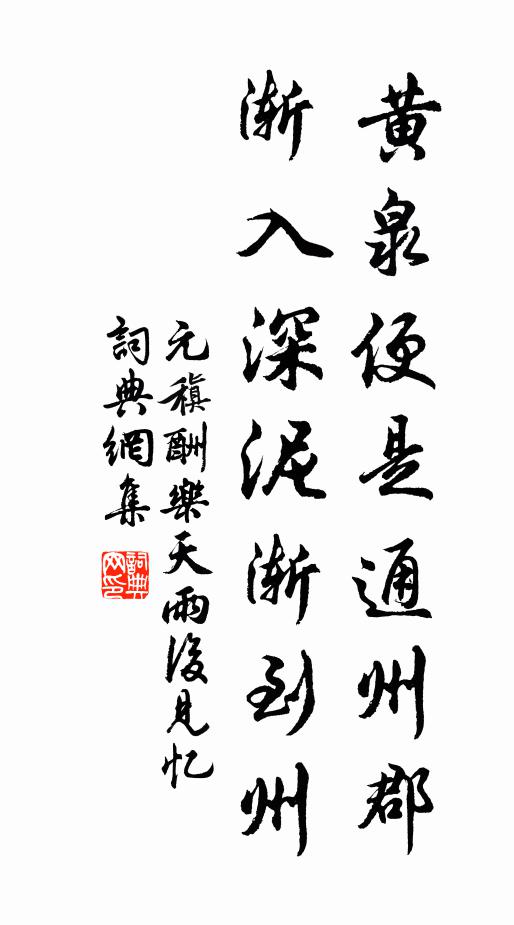 黄泉便是通州郡
漸入深泥漸到州
元稹酬樂天雨後見忆
詞典網集
詞典網印